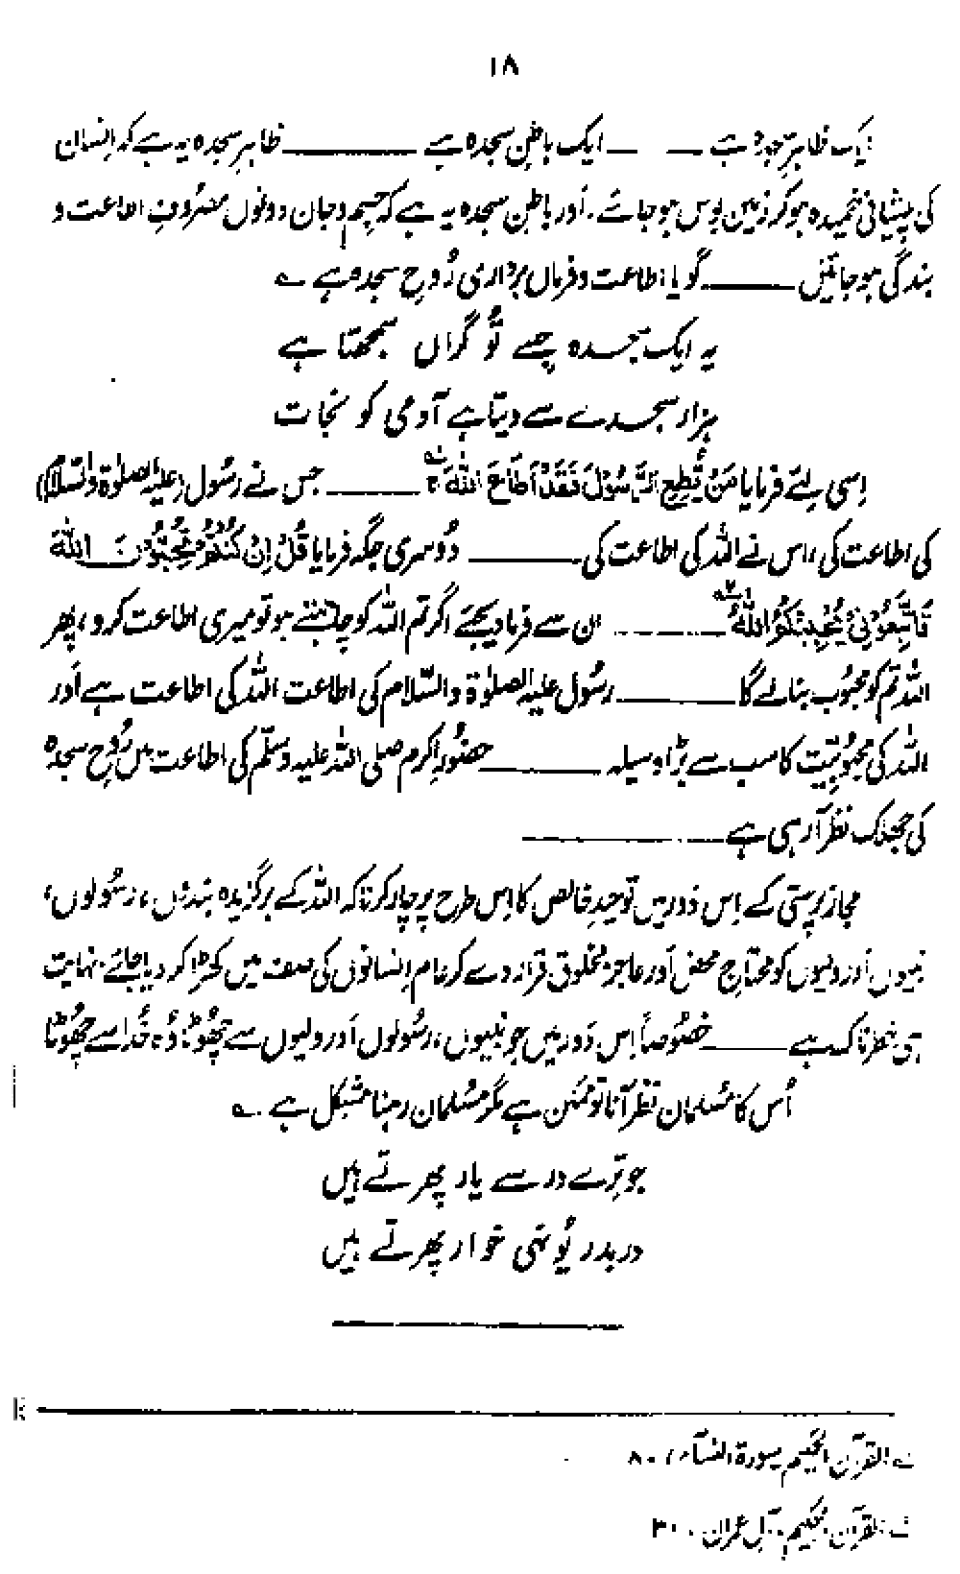 ۱۸
ایک ظاہرِ سجدہ ہے ــــ ایک باطنِ سجدہ ہے ــــــــ ظاہرِ سجدہ یہ ہے کہ انسان
کی پیشانی خمیدہ ہو کر زمین بوس ہو جائے۔ اَور باطنِ سجدہ یہ ہے کہ جسم و جان دونوں مصرُوفِ اطاعت و
بندگی ہو جائیں ــــــــ گویا اطاعت و فرماں برداری رُوحِ سجدہ ہے ؎
یہ ایک سجدہ جسے تُو گراں سمجھتا ہے
ہزار سجدے سے دیتا ہے آدمی کو نجات
اِسی لئے فرمایا مَنْ يُّطِعِ الرَّسُوْلَ فَقَدْ اَطَاعَ اللّٰهَ ؎۱ ــــــــ جس نے رسُول (علیہ الصلوٰۃ والسّلام)
کی اطاعت کی، اس نے اللہ کی اطاعت کی ــــــــ دُوسری جگہ فرمایا قُلْ اِنْ كُنْتُمْ تُحِبُّوْنَ اللّٰهَ
فَاتَّبِعُوْنِيْ يُحْبِبْكُمُ اللّٰهُ ؎۲ ــــــــ ان سے فرما دیجئے اگر تم اللہ کو چاہتے ہو تو میری اطاعت کرو، پھر
اللہ تم کو محبُوب بنا لے گا ــــــــ رسُول علیہ الصلوٰۃ والسّلام کی اطاعت اللہ کی اطاعت ہے اَور
اللہ کی محبُوبیّت کا سب سے بڑا وسیلہ ــــــــ حضُورِ اکرم صلی اللہ علیہ وسلّم کی اطاعت میں رُوحِ سجدہ
کی جھلک نظر آ رہی ہے ــــــــ
مجاز پرستی کے اِس دَور میں توحیدِ خالص کا اِس طرح پرچار کرنا کہ اللہ کے برگزیدہ بندوں، رسُولوں،
نبیوں اَور ولیوں کو محتاجِ محض اَور عاجز مخلوق قرار دے کر عام انسانوں کی صف میں کھڑا کر دیا جائے۔ نہایت
ہی خطرناک ہے ــــــــ خصُوصاً اِس دَور میں جو نبیوں، رسُولوں اَور ولیوں سے چھُوٹا، وُہ خُدا سے چھُوٹا
اُس کا مُسلمان نظر آنا تو ممکن ہے مگر مُسلمان رہنا مشکل ہے ؎
جو تِرے در سے یار پھرتے ہیں
در بدر یُونہی خوار پھرتے ہیں
؎۱ القرآن الحکیم سورۃ النسآء / ۸۰
؎۲ القرآن الحکیم، آلِ عمران، ۳۰